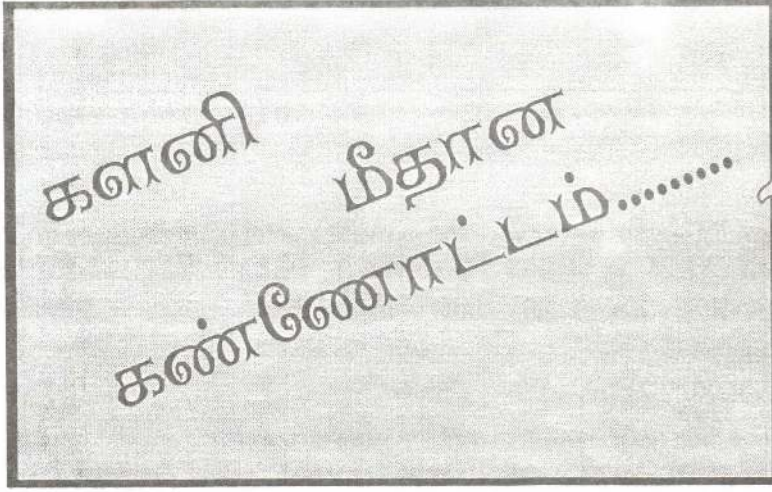 களனி மீதான
கண்ணோட்டம்.........